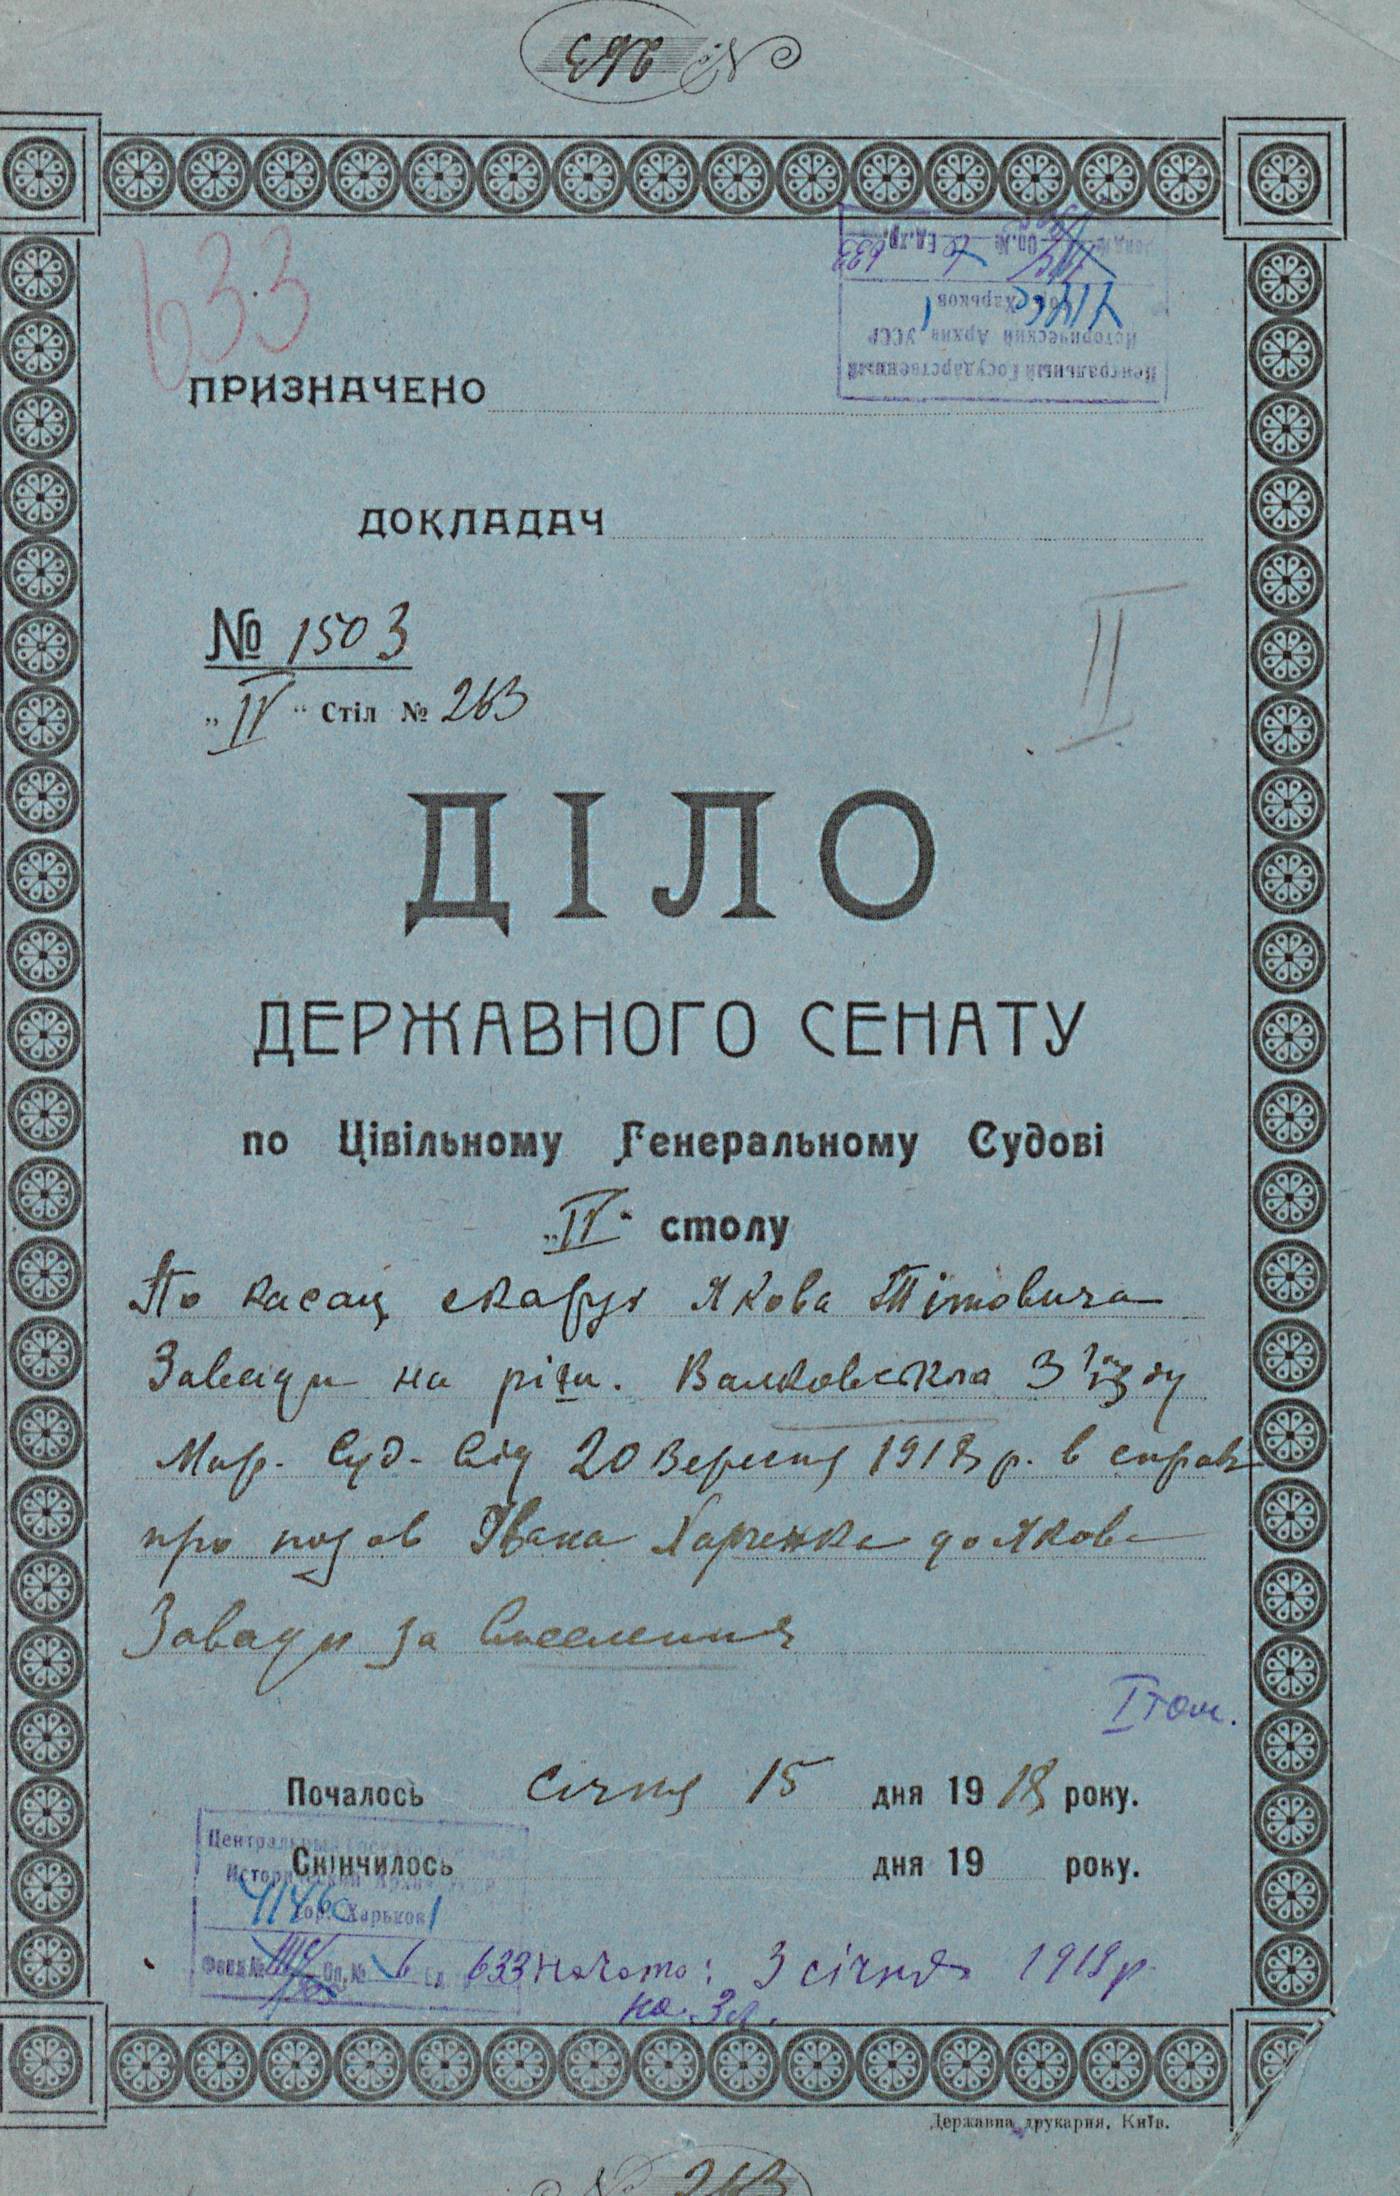 № 263
633
Центральный Государственный
Исторический Архив УССР
гор. Харьков
4146с 1
Фонд № Оп. № 6 Ед. хр. 633
ПРИЗНАЧЕНО
ДОКЛАДАЧ
№ 1503
„IV“ Стіл № 263
II
ДІЛО
ДЕРЖАВНОГО СЕНАТУ
по Цівільному Генеральному Судові
„IV“ столу
По касац скарзі Якова Тітовича
Завади на ріш. Валковська З'їзду
Мир. Суд. від 20 Вересня 1918 р. в справі
про позов Івана Харченка до Якова
Завади за
I том.
Почалось Січня 15 дня 1918 року.
Скінчилось дня 19 року.
Центральный Государственный
Исторический Архив УССР
гор. Харьков
4146с 1
Фонд № Оп. № 6 Ед. 633
Начато: 3 січня 1919 р.
на 3 л.
Державна друкарня. Київ.
№ 263